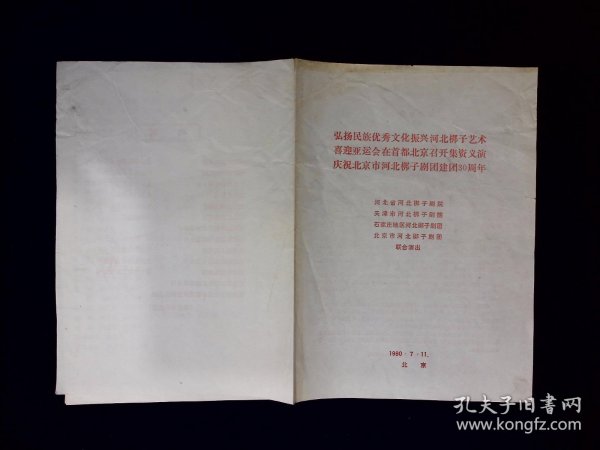 弘扬民族优秀文化振兴河北梆子艺术
喜迎亚运会在首都北京召开集资义演
庆祝北京市河北梆子剧团建团30周年
河北省河北梆子剧院
天津市河北梆子剧院
石家庄地区河北梆子剧团
北京市河北梆子剧团
联合演出
1990·7·11.
北京
孔夫子旧书网
www.kongfz.com